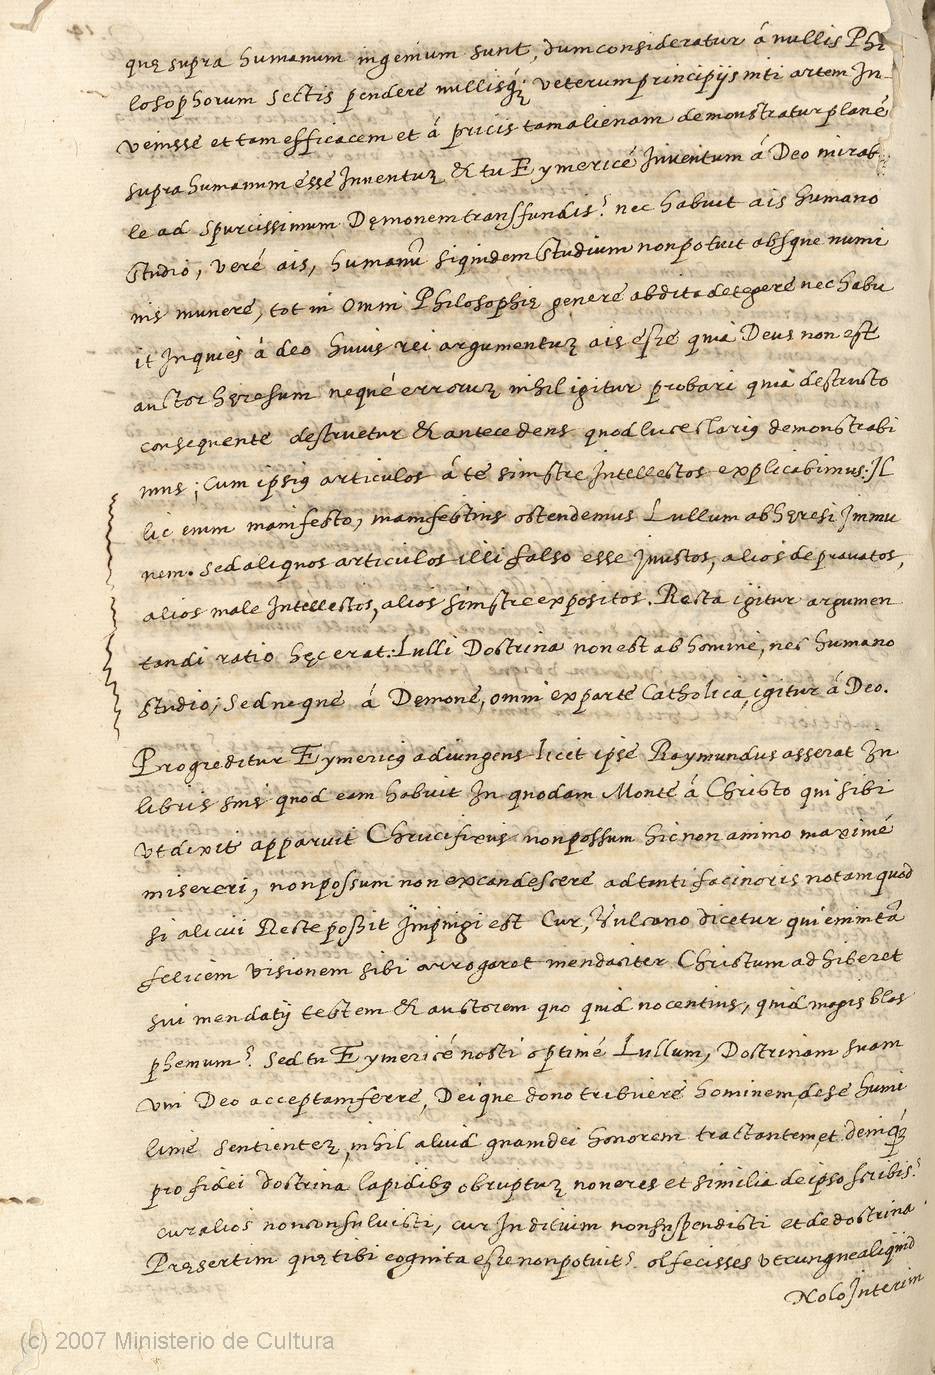 quę supra humanum ingenium sunt, dum consideratur á nullis Phi
losophorum sectis pendere nullisq; veterum principijs niti artem In-
venisse et tam efficacem et á pricis tam alienam demonstratur planè
supra humanum esse Inventuʒ & tu Eymericé Inventum á Deo mirab
le ad spurcissimum Dęmonem transfundis? nec habuit ais humano
studio, veré ais, humanũ siquidem studium non potuit absque numi
nis munere, tot in omni Philosophię genere abdita detegere nec habu
it Inquies á deo huius rei argumentuʒ ais esse quia Deus non est
auctor hęresum nequé erroruʒ nihil igitur probari quia destructo
consequente destruetur & antecedens quod luce clarius demonstrabi
mus; Cum ipsius articulos á te sinistre Intellectos explicabimus. Il
lic enim manifesto, manifestius ostendemus Lullum ab hęresi Immu
nem. sed aliquos articulos illi falso esse Inustos, alios depravatos,
alios male Intellectos, alios sinistre expositos. Recta igitur argumen
tandi ratio hęc erat: Lulli Doctrina non est ab homine, nec humano
studio; Sed neque á Demone, omni ex parte Catholica, igitur á Deo.
Progreditur Eymericus adiungens licet ipse Raymundus asserat In
libris suis quod eam habuit In quodam Monte á Christo qui sibi
vt dixit apparuit Chrucifixus non possum hic non animo maximé
misereri, non possum non excandescere ad tanti facinoris notam quod
si alicui Recte possit Impingi est Cur, Vulcano dicetur qui enim tã
felicem visionem sibi arrogaret mendaciter Christum adhiberet
sui mendatij testem & auctorem quo quid nocentius, quid magis blas
phemum? Sed tu Eymericé nosti optimé Lullum, Doctrinam suam
vni Deo acceptam ferre, Deique dono tribuere hominem, de se humi
limé sentienteʒ, nihil aliud quam dei honorem tractantem, et deniq;
pro fidei doctrina lapidibus obruptuʒ non eres et similia de ipso scribis?
cur alios non consuluisti, cur Inditium non suspendisti et de doctrina
Pręsertim quę tibi cognita esse non potuit? olfecisses vtrunque aliquid
Nolo Interim
(c) 2007 Ministerio de Cultura